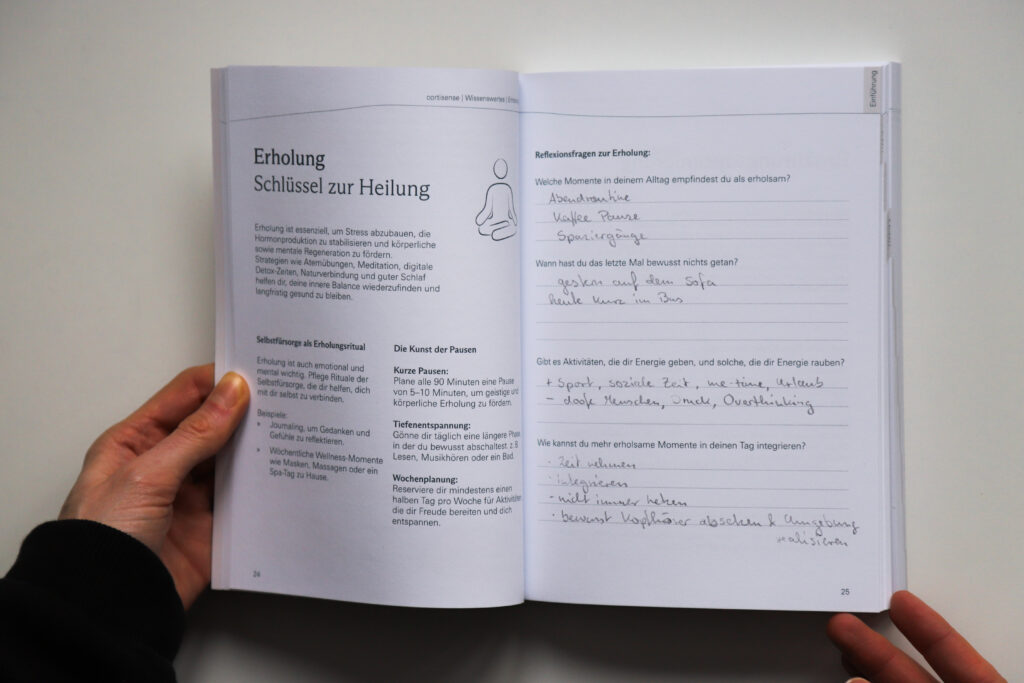 cortisense | Wissenswertes |
Erholung
Schlüssel zur Heilung
Erholung ist essenziell, um Stress abzubauen, die
Hormonproduktion zu stabilisieren und körperliche
sowie mentale Regeneration zu fördern.
Strategien wie Atemübungen, Meditation, digitale
Detox-Zeiten, Naturverbindung und guter Schlaf
helfen dir, deine innere Balance wiederzufinden und
langfristig gesund zu bleiben.
Selbstfürsorge als Erholungsritual
Erholung ist auch emotional und
mental wichtig. Pflege Rituale der
Selbstfürsorge, die dir helfen, dich
mit dir selbst zu verbinden.
Beispiele:
» Journaling, um Gedanken und
Gefühle zu reflektieren.
» Wöchentliche Wellness-Momente
wie Masken, Massagen oder ein
Spa-Tag zu Hause.
Die Kunst der Pausen
Kurze Pausen:
Plane alle 90 Minuten eine Pause
von 5–10 Minuten, um geistige und
körperliche Erholung zu fördern.
Tiefenentspannung:
Gönne dir täglich eine längere Phase,
in der du bewusst abschaltest, z. B.
Lesen, Musikhören oder ein Bad.
Wochenplanung:
Reserviere dir mindestens einen
halben Tag pro Woche für Aktivitäten
die dir Freude bereiten und dich
entspannen.
24
Einführung
Reflexionsfragen zur Erholung:
Welche Momente in deinem Alltag empfindest du als erholsam?
Abendroutine
Kaffee Pause
Spaziergänge
Wann hast du das letzte Mal bewusst nichts getan?
gestern auf dem Sofa
heute kurz im Bus
Gibt es Aktivitäten, die dir Energie geben, und solche, die dir Energie rauben?
+ Sport, soziale Zeit, me-time, Urlaub
- doofe Menschen, Druck, Overthinking
Wie kannst du mehr erholsame Momente in deinen Tag integrieren?
· Zeit nehmen
· integrieren
· nicht immer hetzen
· bewusst Kopfhörer absetzen & Umgebung
realisieren
25